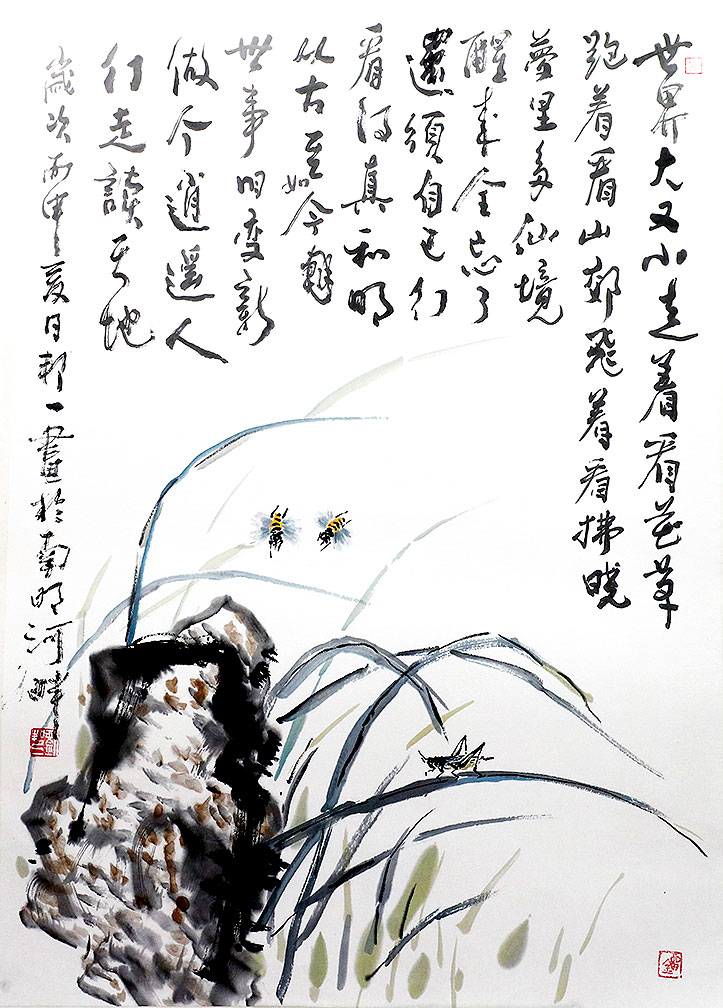 世界大又小走着看花草
跑着看山郊飛着看拂曉
夢里多仙境
醒来全忘了
還須自己行
看得真和明
从古至如今
世事日变新
做个逍遥人
行走談天地
歲次丙申夏日邦一畫於南明河畔